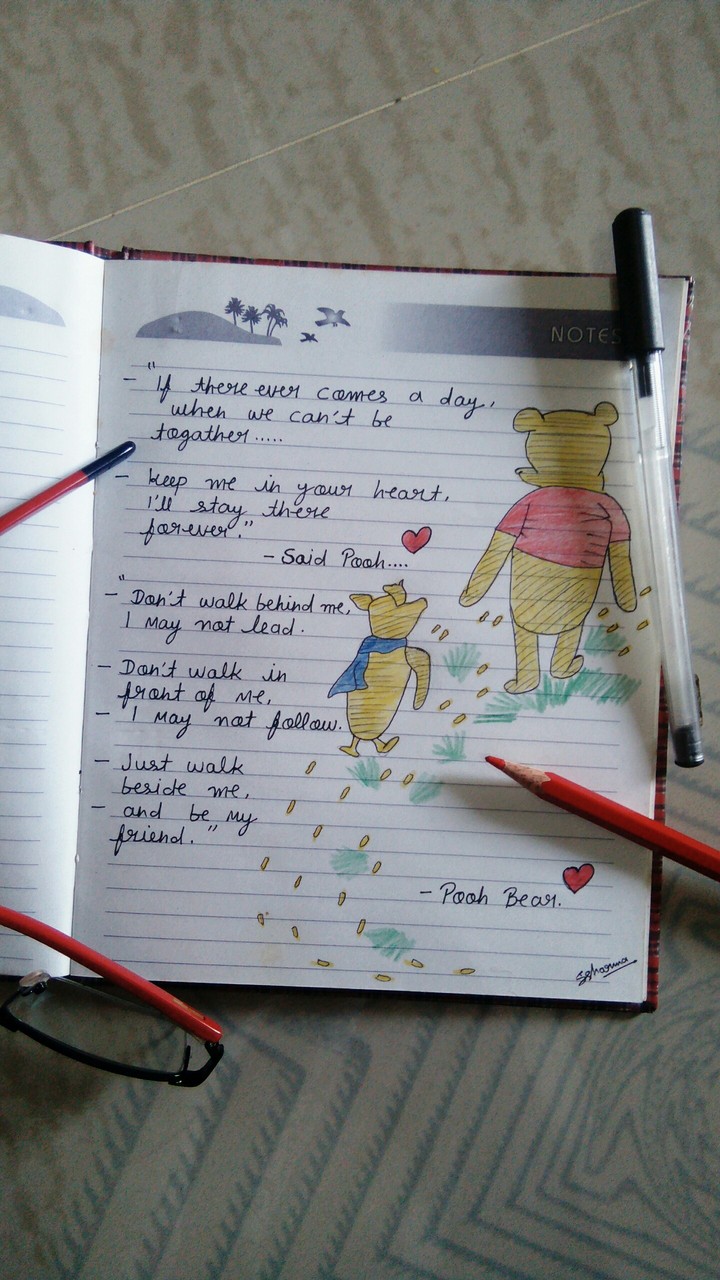 NOTES
- "If there ever comes a day,
when we can't be
togather.....
- keep me in your heart,
I'll stay there
forever."
- Said Pooh....
- "Don't walk behind me,
I may not lead.
- Don't walk in
front of me,
- I may not follow.
- Just walk
beside me,
- and be my
friend."
- Pooh Bear.